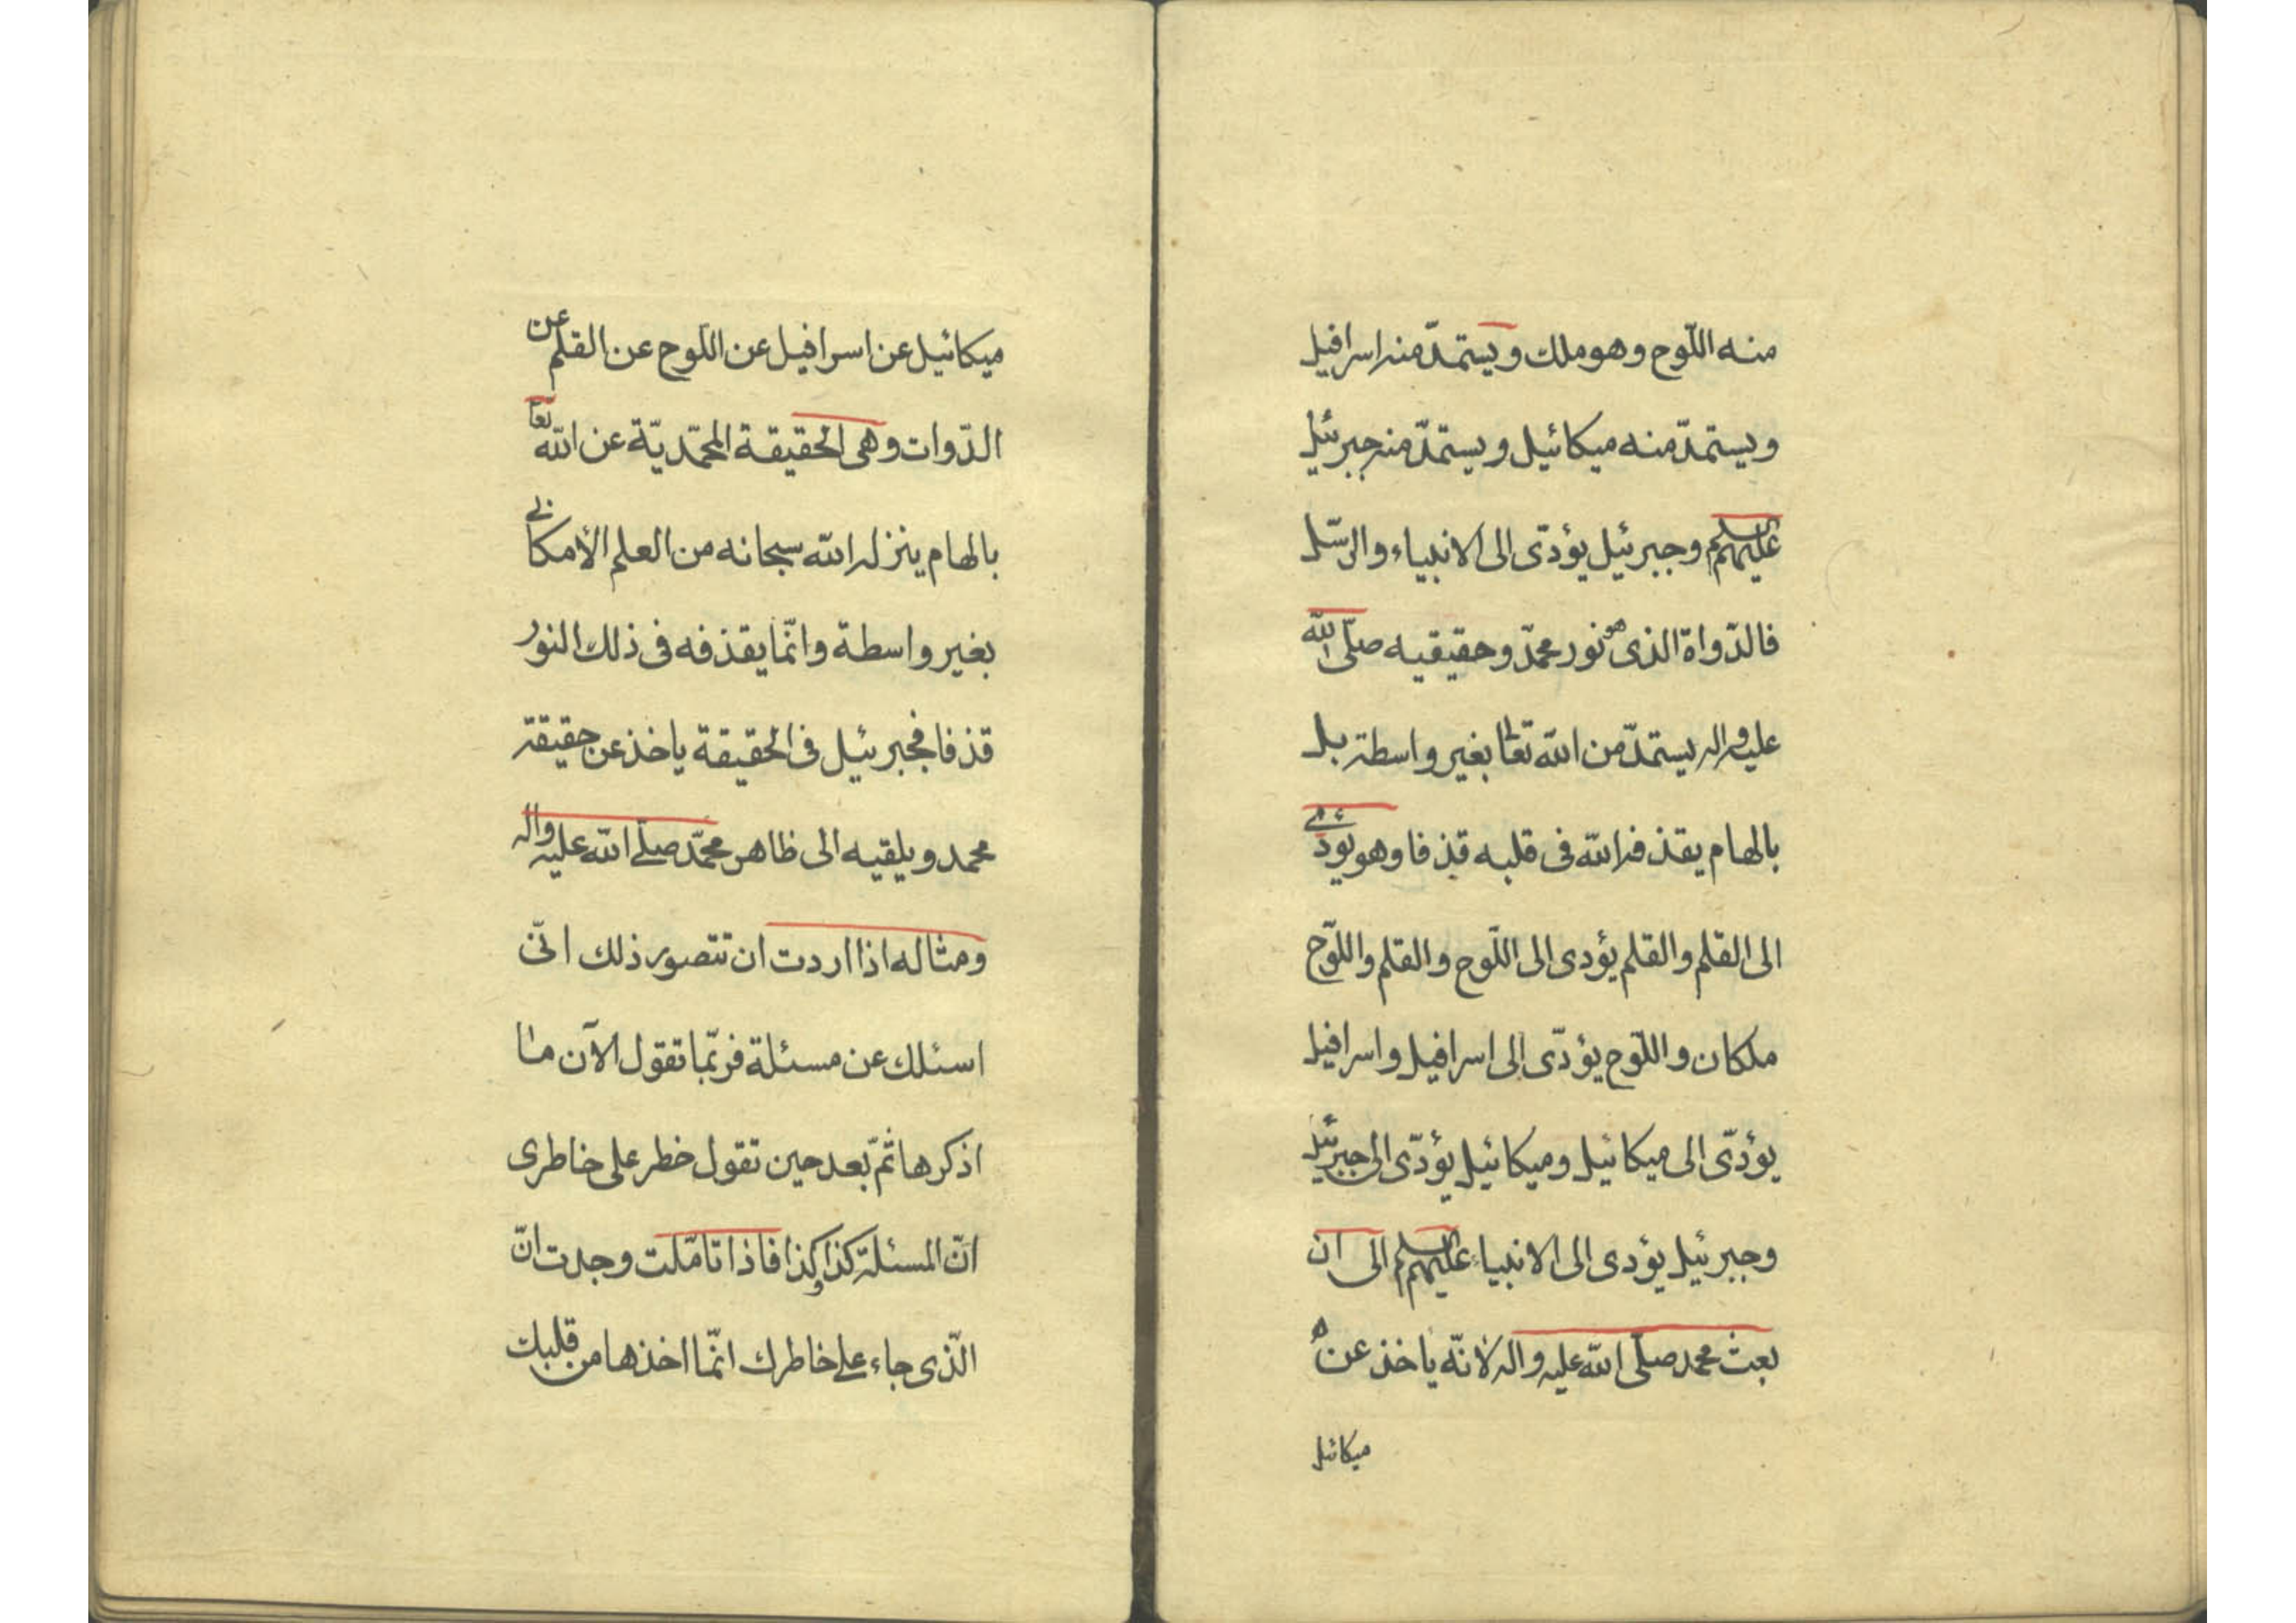 منه اللّوح وهو ملك ويستمدّ منه اسرافيل
ويستمدّ منه ميكائيل ويستمدّ منه جبرئيل
عليهم السلم وجبرئيل يؤدّى الى الانبياء والرّسل
فالدّواة الذى هو نور محمّد وحقيقيه صلّى الله
عليه واله يستمدّ من الله تعالى بغير واسطة بل
بالهام يقذفه الله فى قلبه قذفا وهو يؤدّى
الى القلم والقلم يؤدى الى اللّوح والقلم واللّوح
ملكان واللّوح يؤدّى الى اسرافيل واسرافيل
يؤدّى الى ميكائيل وميكائيل يؤدّى الى جبرئيل
وجبرئيل يؤدى الى الانبياء عليهم السلم الى ان
بعث محمد صلّى الله عليه واله لانّه ياخذ عن
ميكائيل
ميكائيل عن اسرافيل عن اللّوح عن القلم عن
الدّوات وهى الحقيقة المحمّديّة عن الله تعا
بالهام ينزله الله سبحانه من العلم الأمكانى
بغير واسطة وانّما يقذفه فى ذلك النور
قذفا فجبرئيل فى الحقيقة ياخذ عن حقيقة
محمد ويلقيه الى ظاهر محمّد صلّى الله عليه واله
ومثاله اذا اردت ان تتصور ذلك انّى
اسئلك عن مسئلة فربّما تقول الآن ما
اذكرها ثمّ بعد حين تقول خطر على خاطرى
انّ المسئلة كذا وكذا فاذا تامّلت وجدت انّ
الّذى جاء على خاطرك انّما اخذها من قلبك